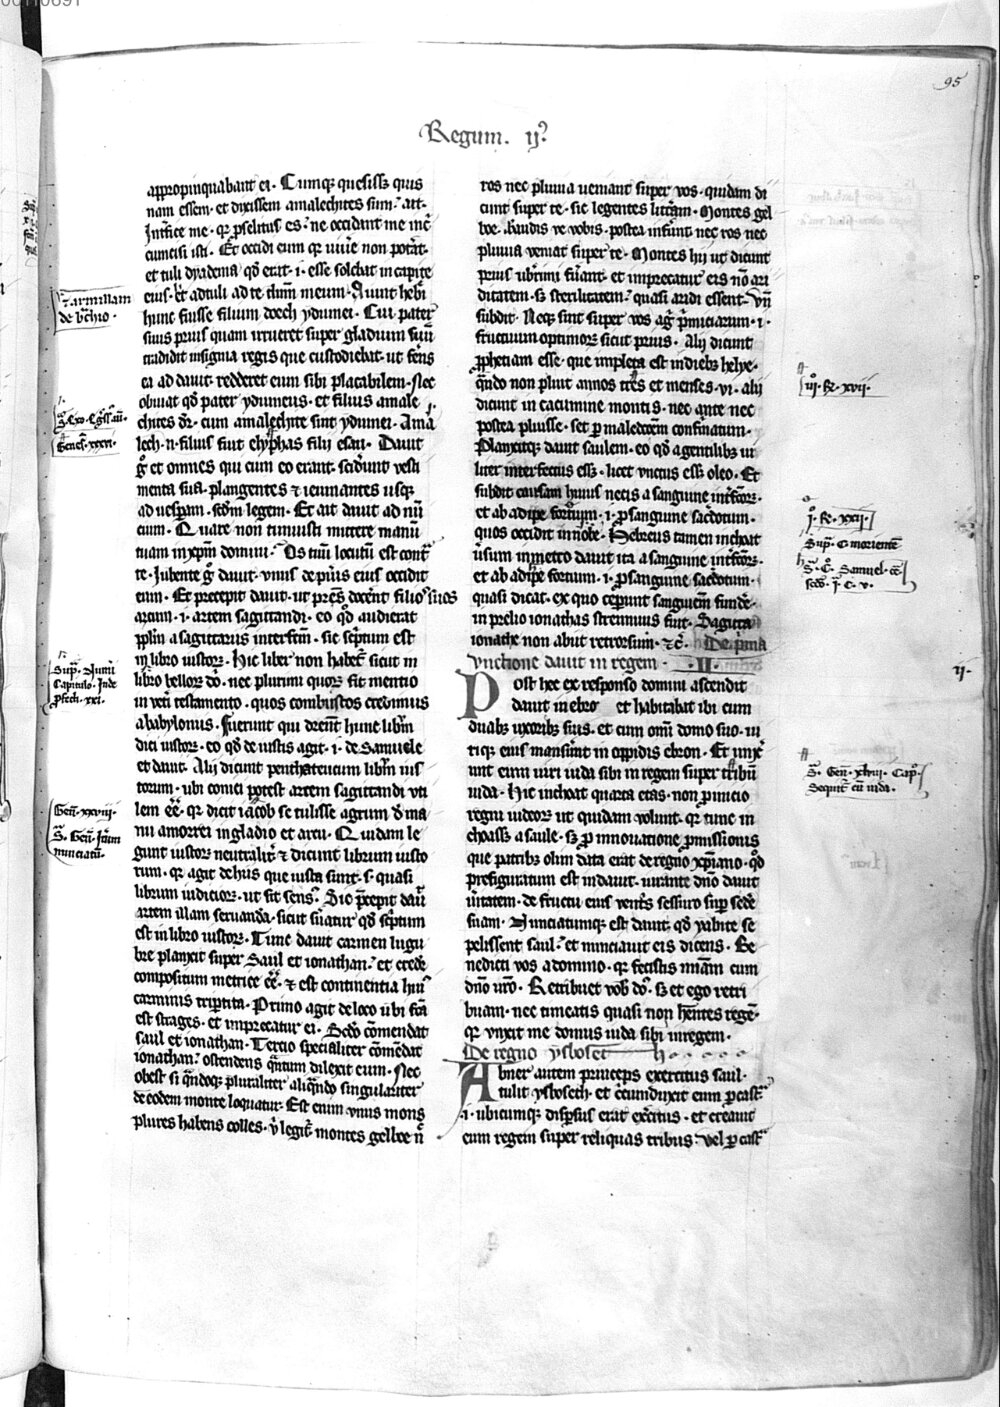 95
Regum. ij.
appropinquabant ei. Cumq; quesiss; quis
nam essem. et dixissem amalechites sum. ait.
Intfice me. qr pselitus es. ne occidant me inc̄
cuncisi isti. Et occidi eum qr viuē non potat.
et tuli dyadema qd erat. i. esse solebat in capite
eius. et adtuli ad te dnm meum. Aiunt hebri
hunc fuisse filium doech ydumei. Cui pater
suus prius quam irrueret super gladium suū
tradidit insignia regis que custodiebat. ut fens
ea ad dauit. redderet eum sibi placabilem. Nec
obuiat qd pater ydumeus. et filius amale
chites dr. cum amalechite sint ydumei. Ama
lech. n. filius fuit elyphas filij esau. Dauit
g et omnes qui cum eo erant. scidunt vesti
menta sua. plangentes et ieiunantes usq;
ad uespam. scdm legem. Et ait dauit ad nū
cium. Quare non timuisti mittere manū
tuam in xpm domini. Os tuū locutū est cont
te. Iubente g dauit. vnus de pueris eius occidit
eum. Et precepit dauit. ut pres docent filios suos
arcum. i. artem sagittandi. eo qd audierat
pplm a sagittariis interftm. sic scptum est
in libro iustor. Hic liber non habet sicut in
libro bellor do. nec plurimi quor fit mentio
in veti testamento. quos combustos credimus
a babylonus. Fuerunt qui dicent hunc librm
dici iustor. eo qd de iustis agit. i. de Samuele
et dauit. Alij dicunt penthateucum librm ius
torum. ubi conici potest artem sagittandi uti
lem ee. qr dicit iacob se tulisse agrum d ma
nu amorrei in gladio et arcu. Quidam le
gunt iustor neutralit et dicunt librum iusto
rum. qr agit de hiis que iusta sunt. s. quasi
librum iudicior. ut sit sens. Sio pcepit dau
artem illam seruanda. sicut suatur qd scptum
est in libro iustor. Tunc dauit carmen lugu
bre planxit super Saul et ionathan. et crede
compositum metrice ee. et est continentia hui
carminis tripertita. Primo agit de loco ubi fca
est strages. et imprecatur ei. Scdo comendat
saul et ionathan. Tercio specialiter comedat
ionathan. ostendens quntum dilexit eum. Nec
obest si qndoq; pluraliter aliqndo singulariter
de eodem monte loquatur. Est enim vnus mons
plures habens colles. v legit montes gelboe n
ros nec pluuia ueniant super vos. quidam di
cunt super te. sic legentes littam. Montes gel
boe. Gaudis ve vobis. postea infunt nec ros nec
pluuia veniat super te. Montes hij ut dicunt
prius ubrimi fuant. et imprecatur eis no ari
ditatem. s; sterilitatem. quasi aridi essent. Vn
subdit. Neq; sint super vos ag pmiciarum. i.
fructuum optimor sicut prius. Alij dicunt
pphetiam esse. que impleta est in dieb; helye.
qndo non pluit annos tres et menses. vi. alij
dicunt in cacumine montis. nec ante nec
postea pluisse. set p maledcoem confinatum.
Planxitq; dauit saulem. eo qd agentilib; ui
liter interfectus ess;. licet vnctus ess; oleo. Et
subdit causam huius necis a sanguine intfcor.
et ab adipe fortium. i. p sanguine sacdotum.
quos occidit in nobe. Hebreus tamen inchoat
usum in metro dauit ita a sanguine intfcor.
et ab adipe fortium. i. p sanguine sacdotum.
quasi dicat. ex quo cepunt sanguiem funde.
in prelio ionathas strennuus fuit. Sagitta
ionathe non abiit retrorsum. et c. De pma
vnctione dauit in regem. II.
Post hec ex responso domini ascendit
dauit in ebro et habitabat ibi cum
duab; uxorib; suis. et cum omi domo suo. ui
riq; eius mansunt in oppidis ebron. Et unx
unt eum uiri iuda sibi in regem super tribu
iuda. Hic inchoat quarta etas. non p inicio
regni iudeor ut quidam volunt. qr tunc in
choass; a saule. s; p innouatione pmissionis
que patrib; olim data erat de regno xpiano. qd
prefiguratum est in dauit. iurante dno dauit
uitatem. de fructu eius ventis sessuro sup sede
suam. Nunciatumq; est dauit. qd yabite se
pelissent saul. et nunciauit eis dicens. Be
nedicti vos a domino. qr fecistis miam cum
dno uro. Retribuet vob do. s; et ego retri
buam. nec timeatis quasi non hentes rege.
qr vnxit me domus iuda sibi in regem.
De regno ysboset
Abner autem princeps exercitus saul.
tulit ysboseth. et ccunduxit eum p cast
i. ubicumq; dispsus erat excitus. et creauit
eum regem super reliquas tribus. vel p cast
armillam
de bchio.
Genes. xxxvi.
Sup. Numi
Capitulo. Inde
pfecti. xxi.
Gen. xxviii.
S. Gen. Itum
nunciatu.
iij. Re. xvii.
i. Re. xxij.
Sup. c. moriente
S. C. Samuel.
ij.
S. Gen. xlviij. Cap.
Sequit cu iuda.